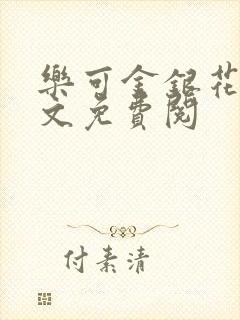 樂可金銀花
文免費閱
付素清